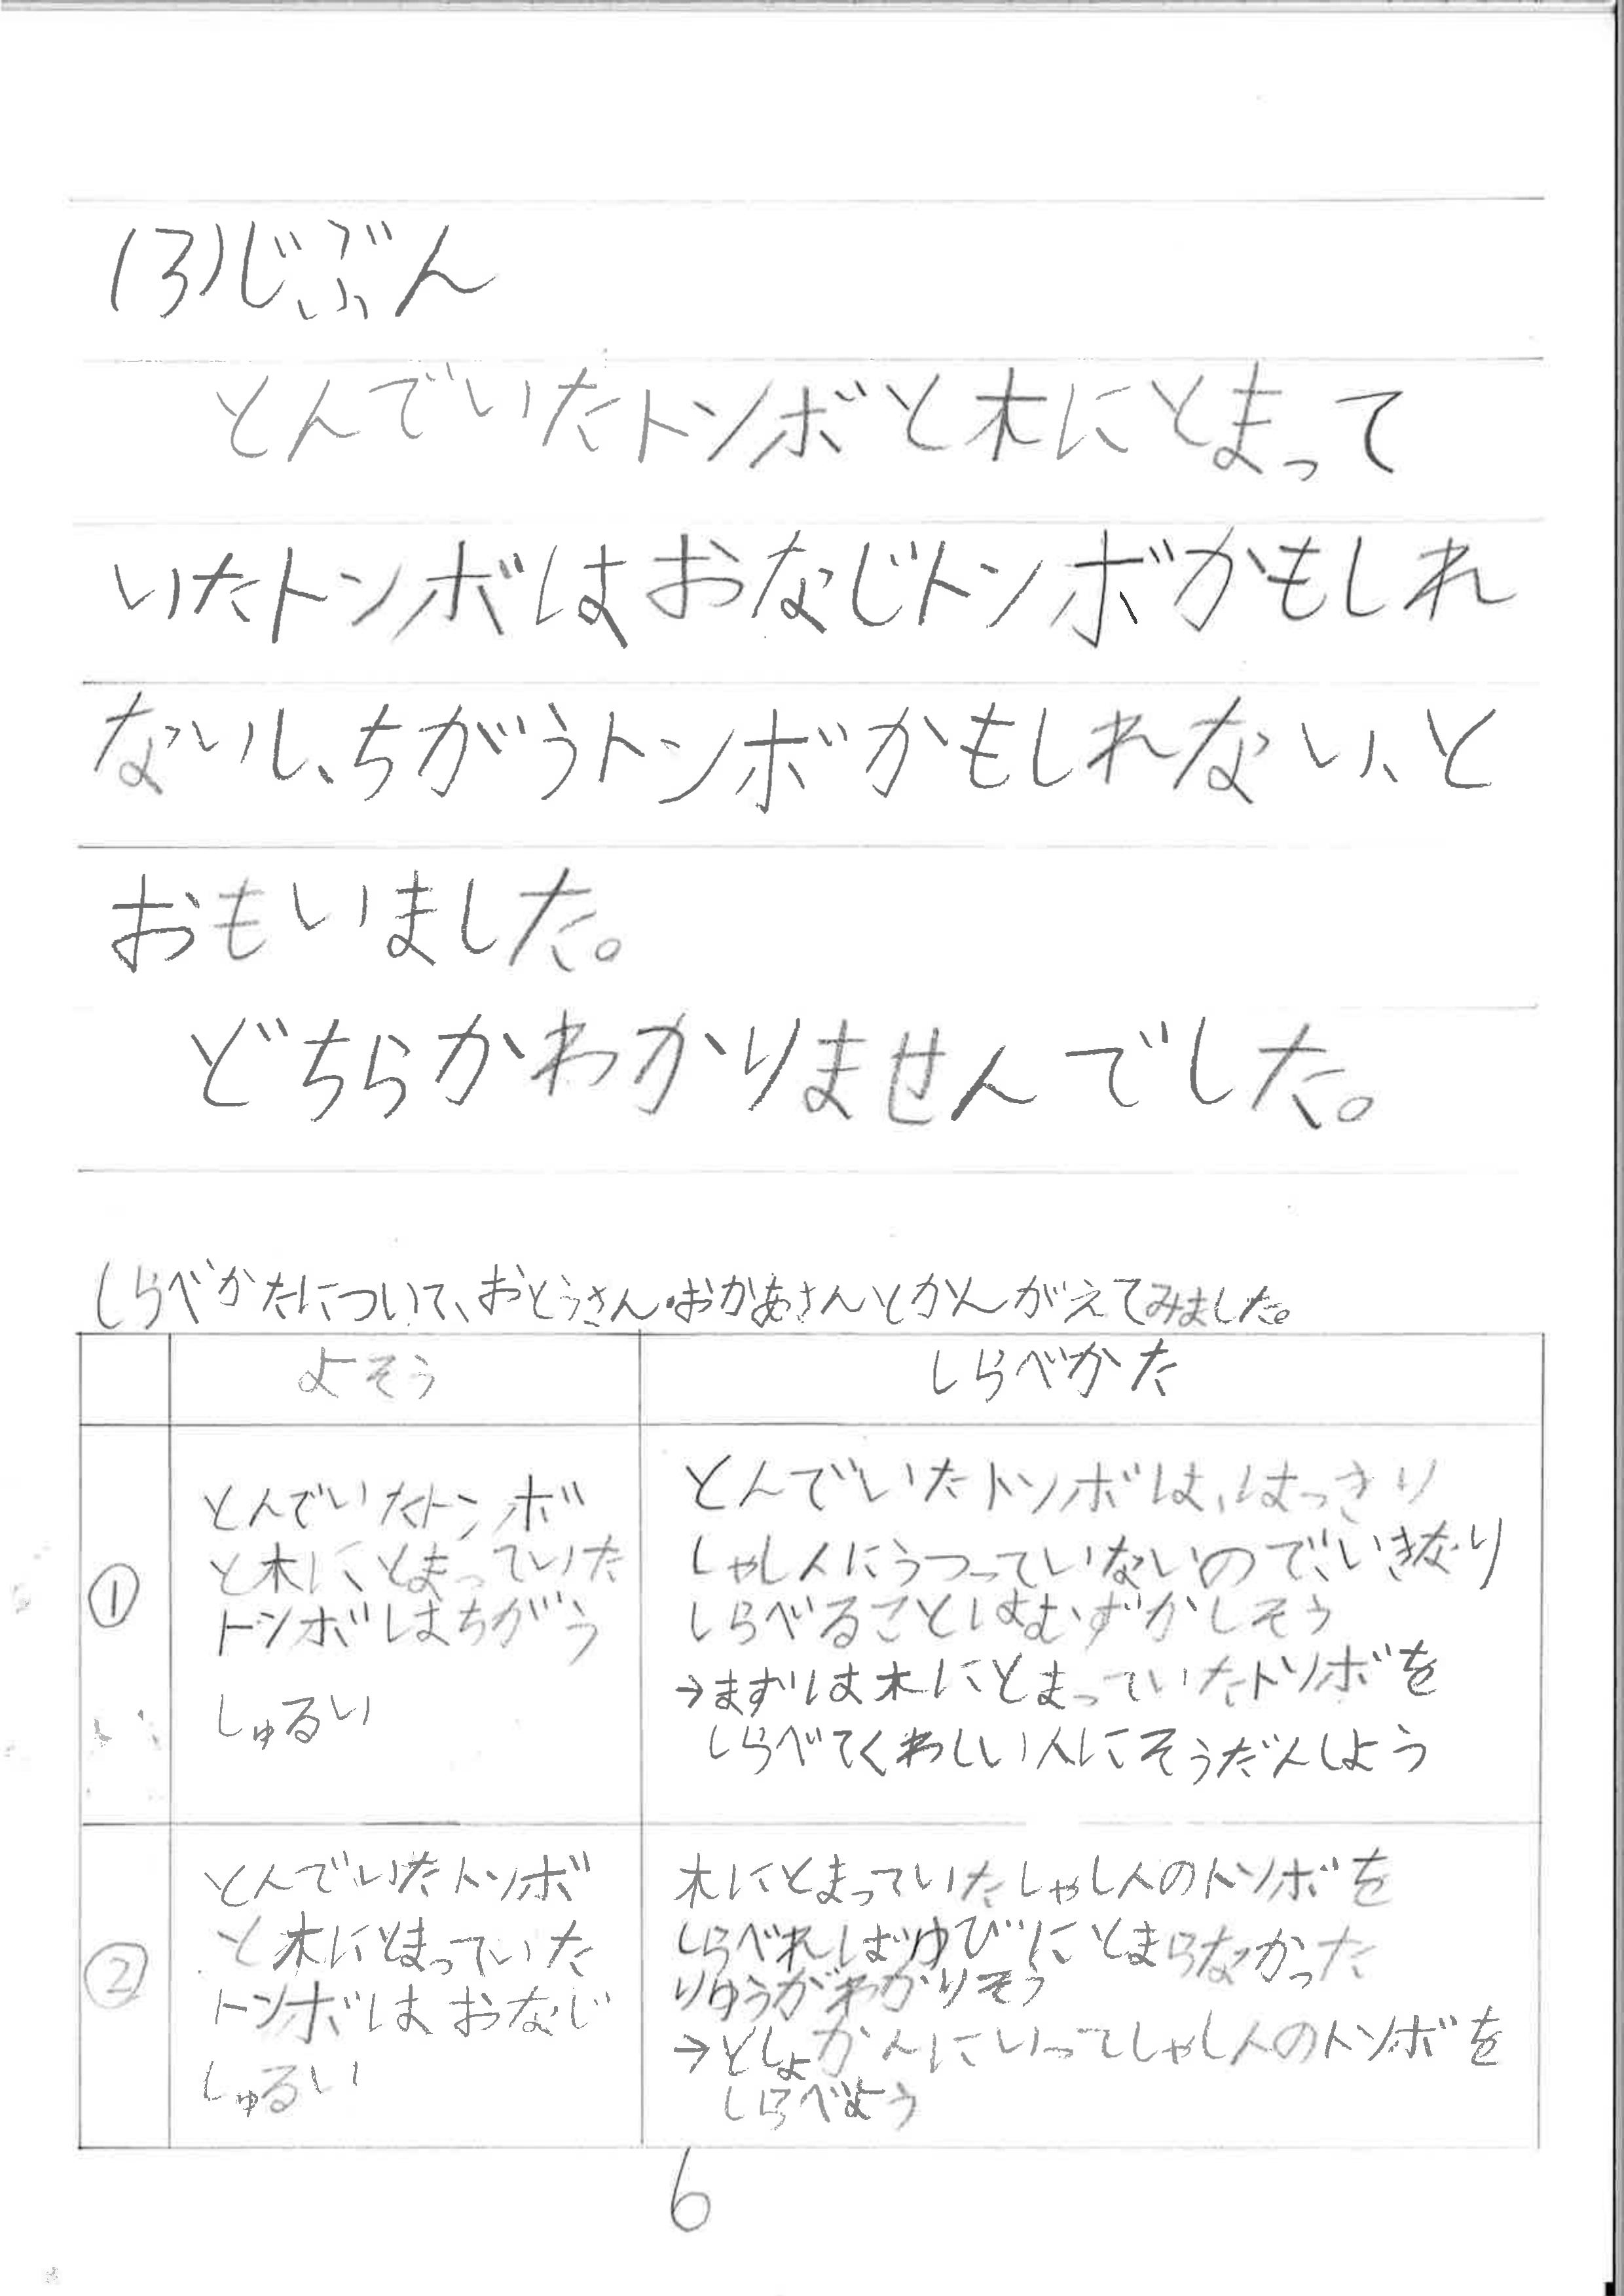 (3)じぶん
とんでいたトンボと木にとまって
いたトンボはおなじトンボかもしれ
ないし、ちがうトンボかもしれない、と
おもいました。
どちらかわかりませんでした。
しらべかたについて、おとうさん・おかあさんとかんがえてみました。
よそう
しらべかた
①
とんでいたトンボ
と木にとまっていた
トンボはちがう
しゅるい
とんでいたトンボは、はっきり
しゃしんにうつっていないので、いきなり
しらべることはむずかしそう
→まずは木にとまっていたトンボを
しらべてくわしい人にそうだんしよう
②
とんでいたトンボ
と木にとまっていた
トンボはおなじ
しゅるい
木にとまっていたしゃしんのトンボを
しらべればゆびにとまらなかった
りゆうがわかりそう
→としょかんにいってしゃしんのトンボを
しらべよう
6